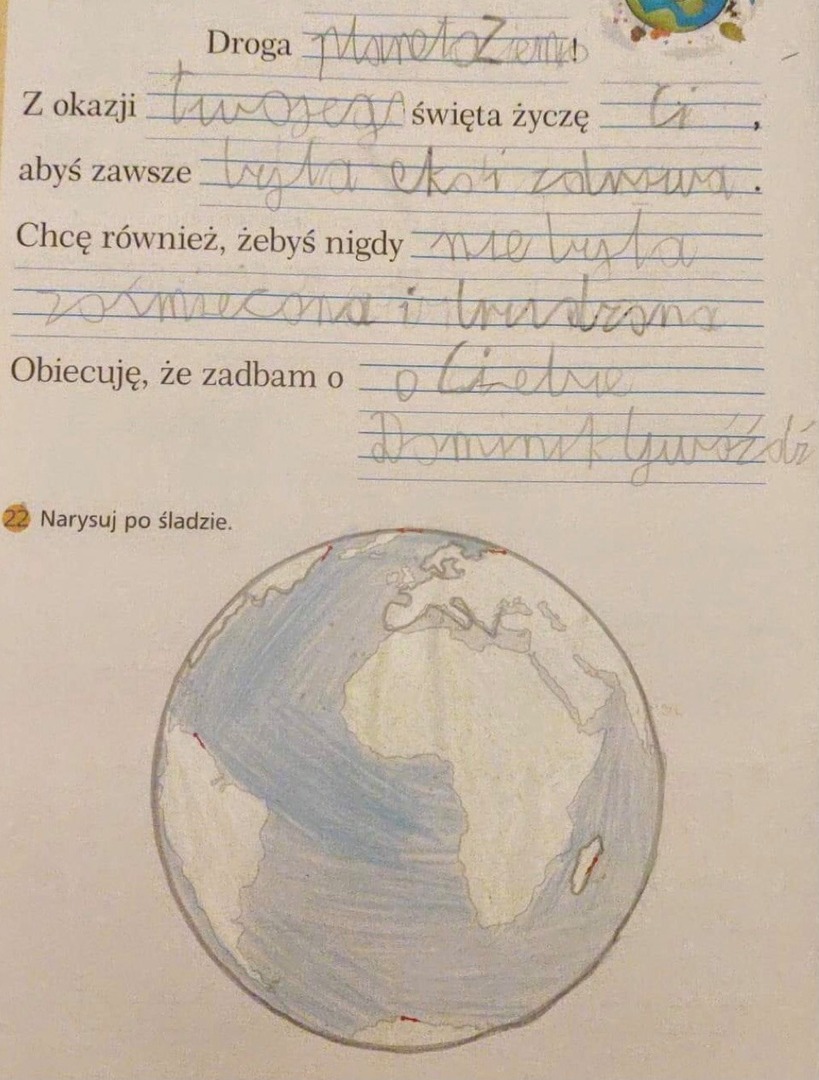 Droga planeto Ziemio!
Z okazji twojego święta życzę Ci,
abyś zawsze była eko i zdrowa.
Chcę również, żebyś nigdy nie była
zaśmiecona i brudzona
Obiecuję, że zadbam o o Ciebie
Dominik Gwóźdź
22 Narysuj po śladzie.